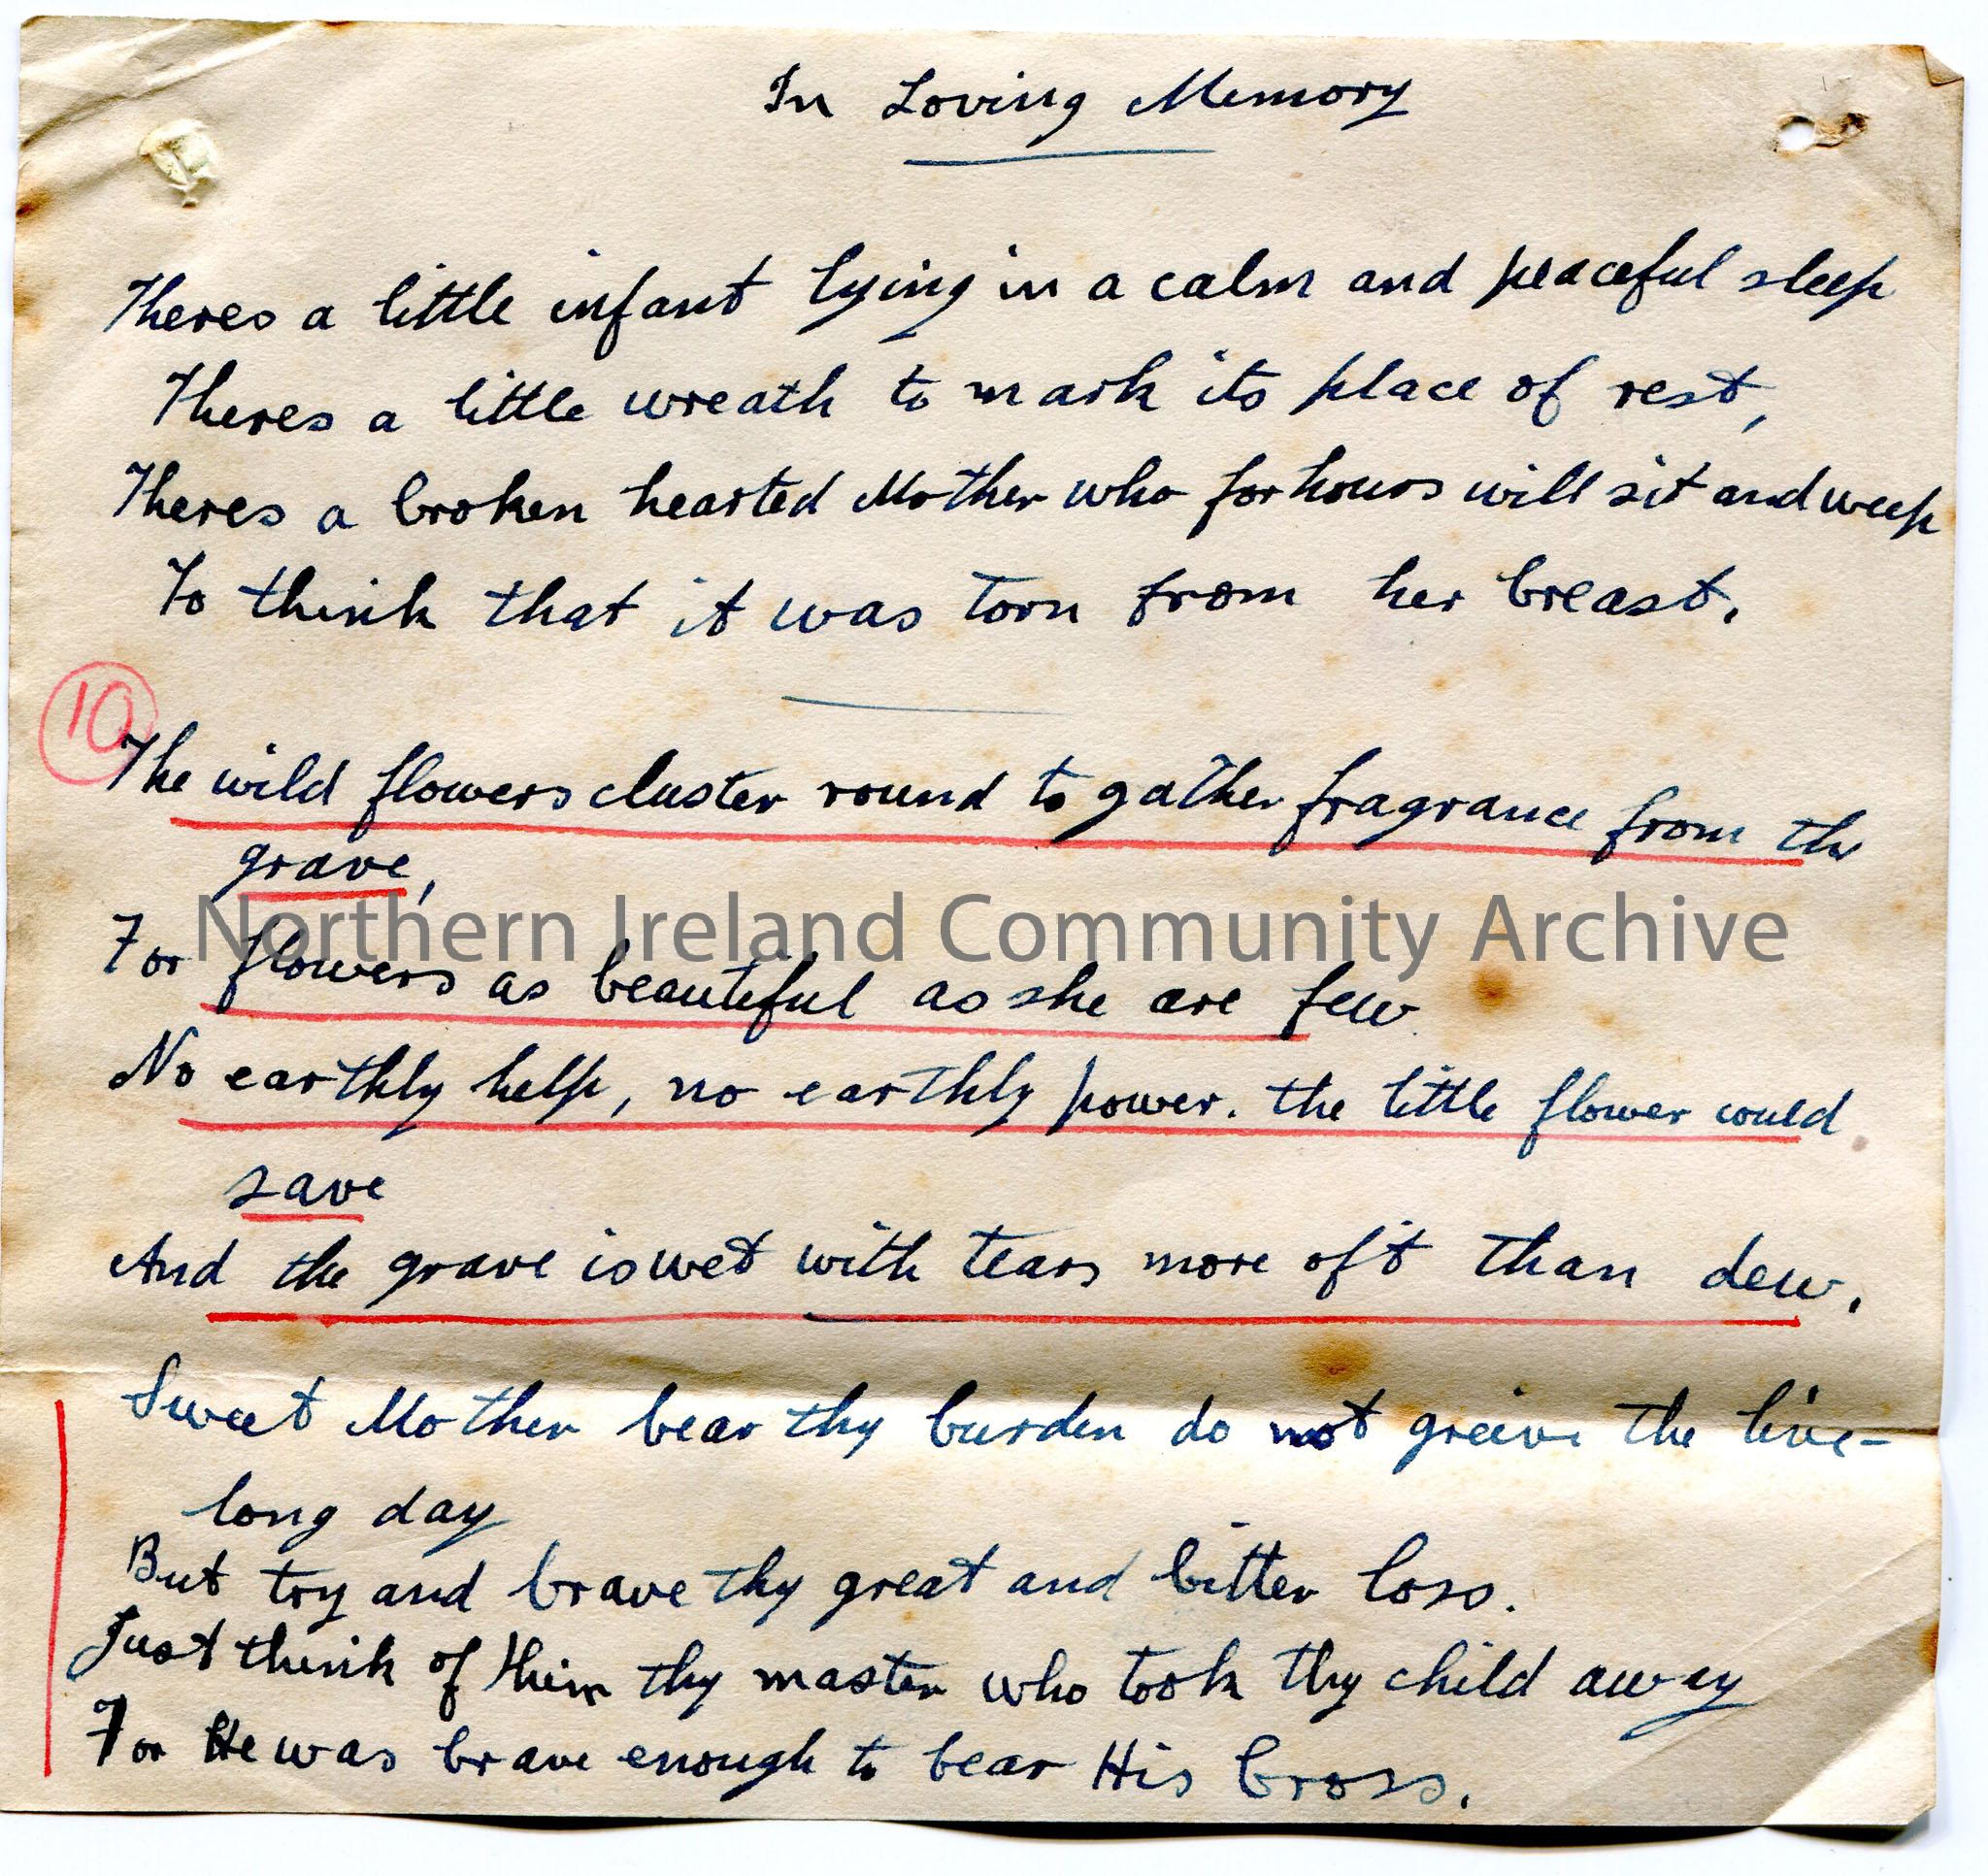 In Loving Memory
Theres a little infant lying in a calm and peaceful sleep
Theres a little wreath to mark its place of rest,
Theres a broken hearted Mother who for hours will sit and weep
To think that it was torn from her breast.
10
The wild flowers cluster round to gather fragrance from the
grave,
Northern Ireland Community Archive
For flowers as beautiful as she are few
No earthly help, no earthly power. the little flower could
save
And the grave is wet with tears more oft than dew.
Sweet Mother bear thy burden do not greive the live-
long day
But try and brave thy great and bitter loss.
Just think of Him thy master who took thy child away
For He was brave enough to bear His Cross.